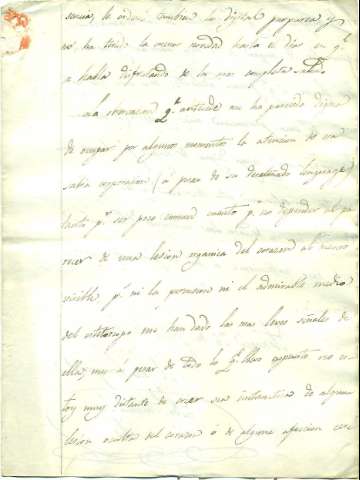 le ordené tambien la digital purpurea y
no ha tenido la menor novedad hasta el dia en q.e
se halla disfrutando de la mas completa salud.
La observacion q.e antecede me ha parecido digna
de ocupar por algunos momentos la atencion de una
sabia corporacion (á pesar de su desaliñado lenguaje)
tanto p.r ser poco comun, cuanto p.r no depender al pa
recer de una lesion organica del corazon al menos
visible p.s ni la percusion ni el admirable medio
del estetoscopo me han dado las mas leves señales de
ella; mas á pesar de todo lo q.e llevo espuesto no es
toy muy distante de creer sea sintomatica de alguna
lesion oculta del corazon ó de alguna afeccion